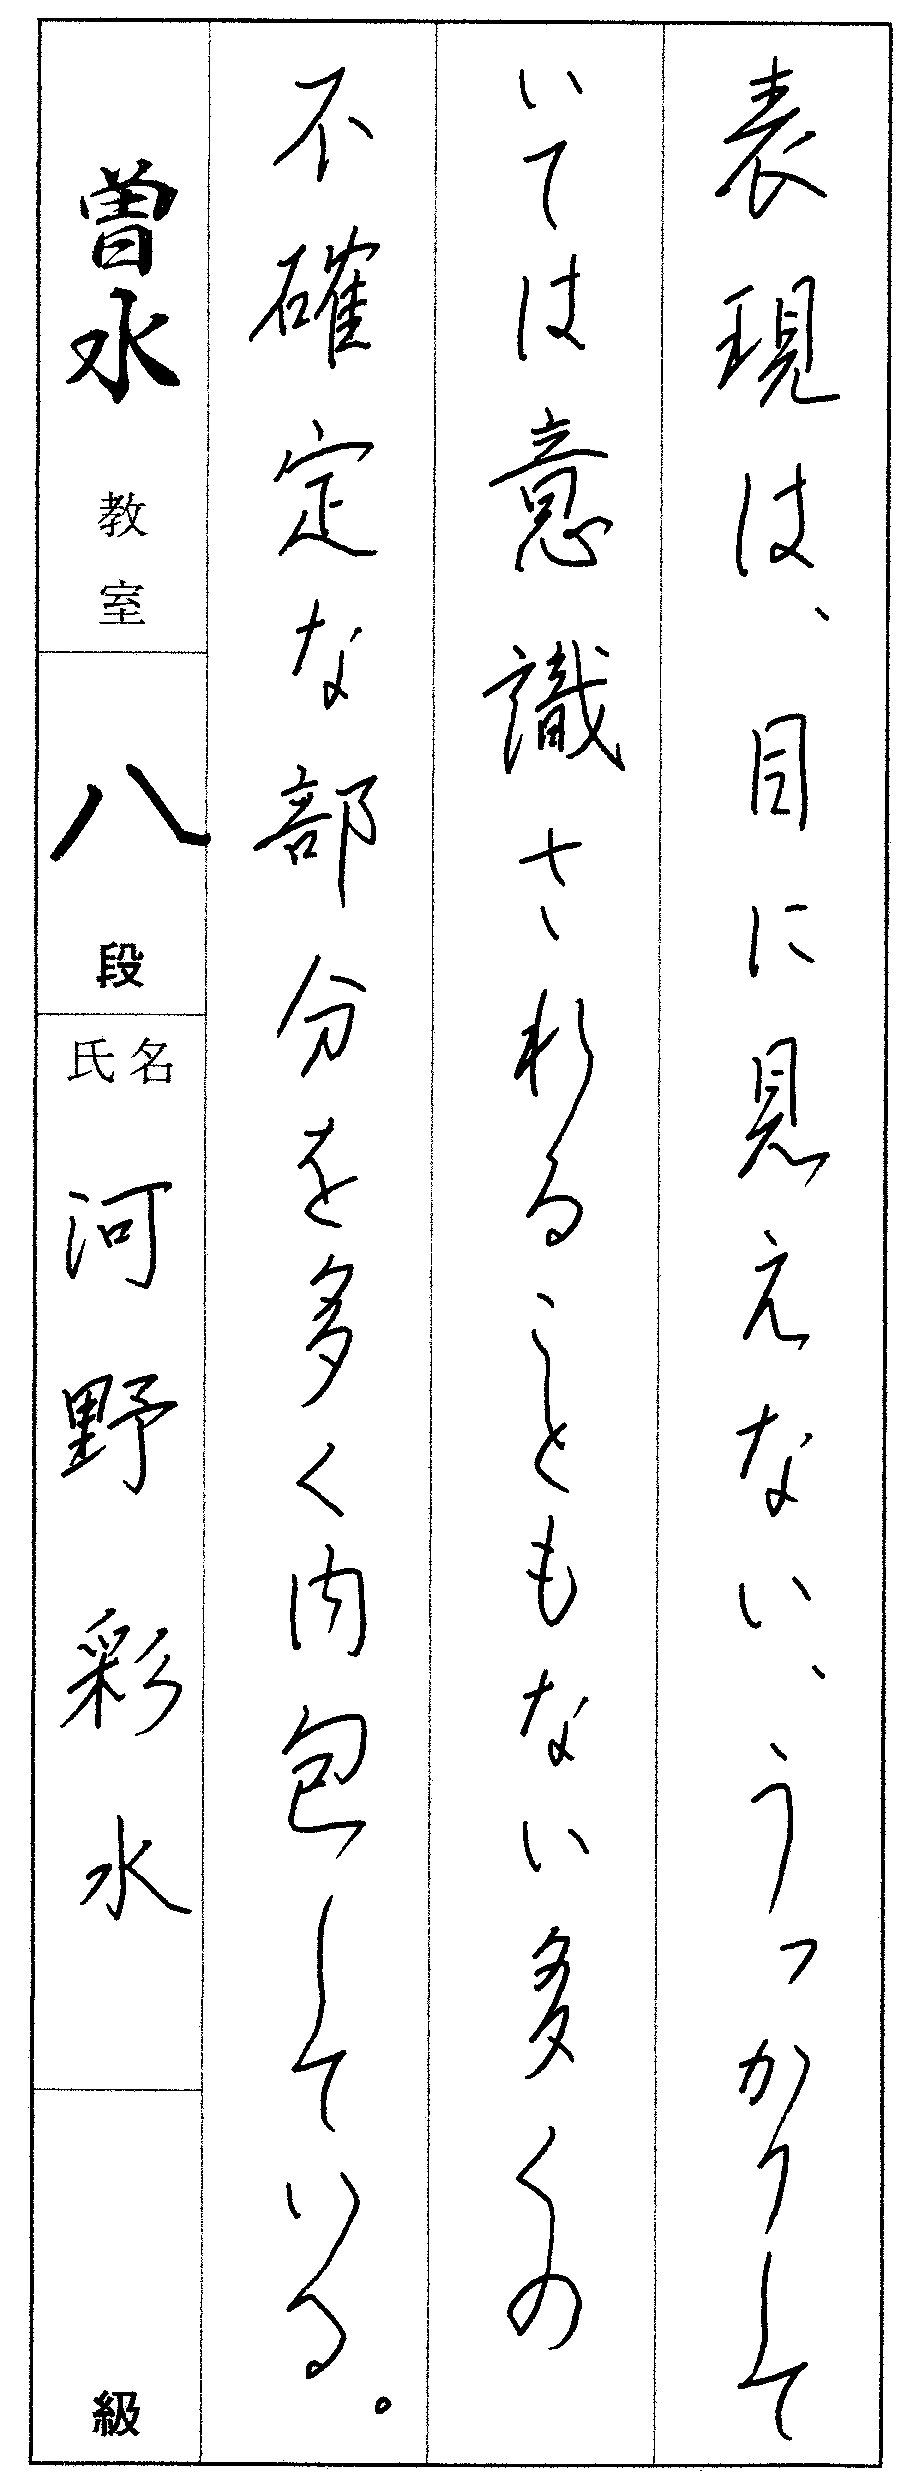 表現は、目に見えない、うっかりして
いては意識されることもない多くの
不確定な部分を多く内包している。
曽水教室
八段
氏名 河野彩水
級